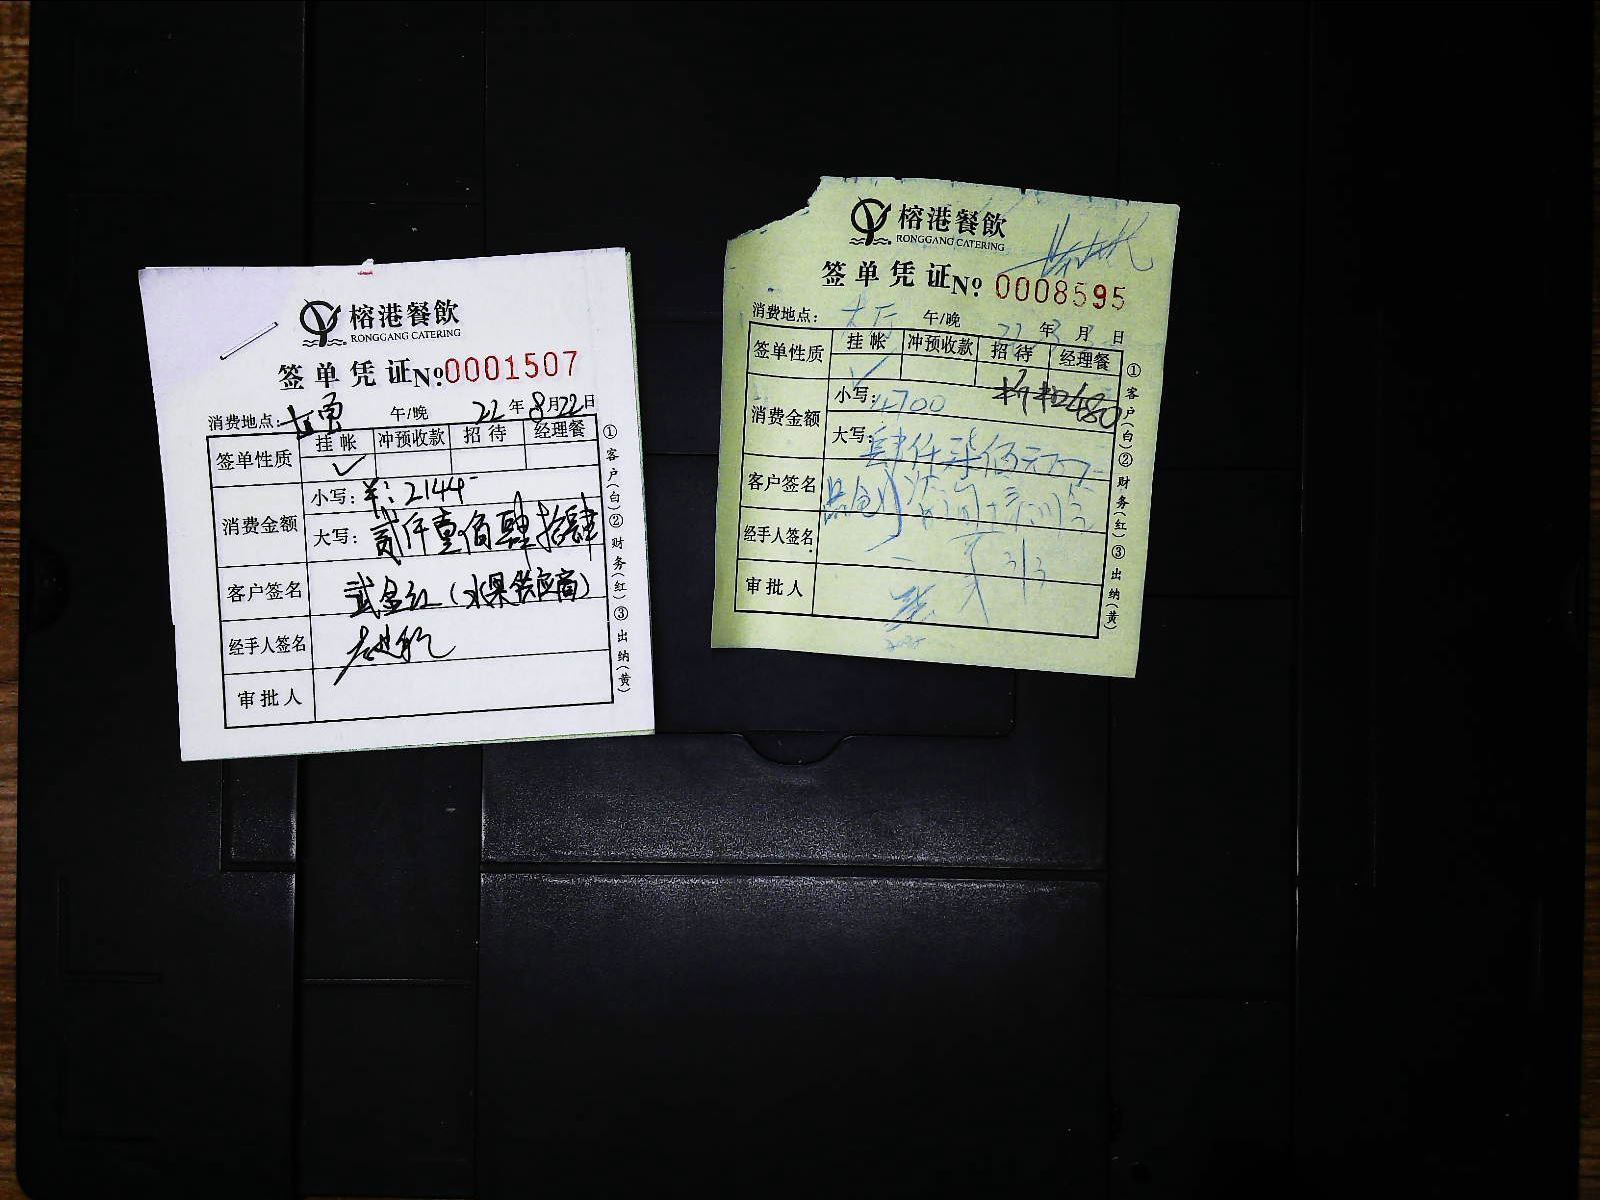 榕港餐飲
RONGGANG CATERING
签单凭证 No 0001507
消费地点: 午/晚 22年8月22日
签单性质 挂帐 冲预收款 招待 经理餐
✓
消费金额 小写: ¥: 2144-
大写: 贰仟壹佰肆拾肆
客户签名 武金红(水果供应商)
经手人签名
审批人
①客户(白)②财务(红)③出纳(黄)
榕港餐飲
RONGGANG CATERING
签单凭证 No 0008595
消费地点: 大厅 午/晚 22年3月3日
签单性质 挂帐 冲预收款 招待 经理餐
✓
消费金额 小写: 4700
大写: 肆仟柒佰元
客户签名
经手人签名 3/3
审批人
①客户(白)②财务(红)③出纳(黄)